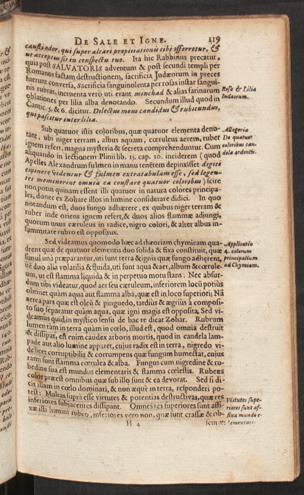 DE SALE ET IGNE. 119
canstandar, qui super altare propitiationis tibi offeretur, &
ut acceptus sit in conspectu tuo. Ita hic Rabbinus precatur,
quia post SALVATORIS adventum & post secundi templi per
Romanos factam destructionem, sacrificia Judæorum in preces
sunt conversa, sacrificia sanguinolenta per rosas instar sangui-
nis rubras, incruenta vero uti erant minchad & alias farinarum
oblationes per lilia alba denotando. Secundum illud quod in
Cantic. 5. & 6. dicitur. Delectus meus candidus & rubicundus,
qui pascitur inter lilia.
Rosæ & Lilia
Iudæorum.
Sub quatuor istis coloribus, quæ quatuor elementa deno-
tant, ubi niger terram, albus aquam, cæruleus aerem, rubet
ignem refert, magna mysteria & secreta comprehenduntur. Cum
aliquando in lectionem Plinii lib. 35. cap. 10. inciderem (quod
Apelles Alexandrum fulmen in manu tenentem depinxisset digiti
eminere videntur & fulmen extra tabulam esse, sed legen-
tes meminerint omnia ea constare quatuor coloribus) scire
non potui quinam essent illi quatuor in natura colores principa-
les, donec ex Zohare illos in lumine considerare didici. In quo
notandum est, duos fungo adhærere, ex quibus niger terram &
ruber inde oriens ignem refert, & duos alios flammæ adiungi,
quorum unus cæruleus in radice, nigro colori, & alter albus in
summitate rubro est oppositus.
Allegoria
De quatuor
coloribus can-
dela ardentis.
Sed videamus quomodo hæc adhærentia chymicam quæ-
drent quæ de quatuor elementis duo solida & fixa constituit, quæ
simul unà præparantur, uti sunt terra & ignis quæ fungo adhærent,
uti duo alia volatilia & fluida, uti sunt aqua & aer, album & cœrule-
um, ut est flamma liquida & in perpetuo motu stans. Nec absur-
dum tibi videatur, quod aer seu cæruleum, inferiorem locū potius
obtinet quàm aqua aut flamma alba, quæ est in loco superiori; Nā
aerea pars quæ est olei & pinguedo, tardius & ægrius à composi-
to suo separatur quàm aqua, quæ igni magis est opposita.
Applicatio
4. colorum
principalium
ad Chymiam.
lumen tam in terra quàm in cœlo, illud est, quod omnia destruit
& dissipat, est enim caudex arboris mortis, quod in candela lam-
pade aut alio lumine apparet, cujus radix est in terra, nigredo vi-
delicet corruptibilis & corrumpens quæ fungum humectat, cujus
rami sunt flamma cærulea & alba. Fungus cum nigredine & ru-
bedine sua est mundus elementaris & flamma cœlestis. Rubeus
color præest omnibus quæ sub illo sunt & ea devorat. Sed si di-
cis illam in cœlo dominari, & non æquè in terra, responderi po-
test: Multas suprà esse virtutes & potentias destructivas, quæ res
inferiores subjacentes dissipant. Omnes res superiores sunt affi-
xæ isti lumini rubro, inferiores vero non, quæ sunt crassæ & cib-
Virtutes supe-
riores sunt af-
H 4